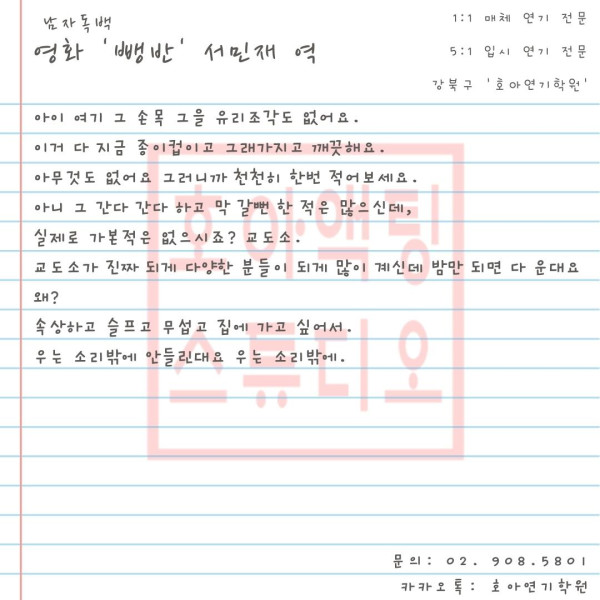 남자독백
영화 '뺑반' 서민재 역
1:1 매체 연기 전문
5:1 입시 연기 전문
강북구 '호아연기학원'
아이 여기 그 손목 그을 유리조각도 없어요.
이거 다 지금 종이컵이고 그래가지고 깨끗해요.
아무것도 없어요 그러니까 천천히 한번 적어보세요.
아니 그 간다 간다 하고 막 갈뻔 한 적은 많으신데,
실제로 가본적은 없으시죠? 교도소.
교도소가 진짜 되게 다양한 분들이 되게 많이 계신데 밤만 되면 다 운대요
왜?
속상하고 슬프고 무섭고 집에 가고 싶어서.
우는 소리밖에 안들린대요 우는 소리밖에.
호아액팅
스튜디오
문의: 02. 908.5801
카카오톡: 호아연기학원